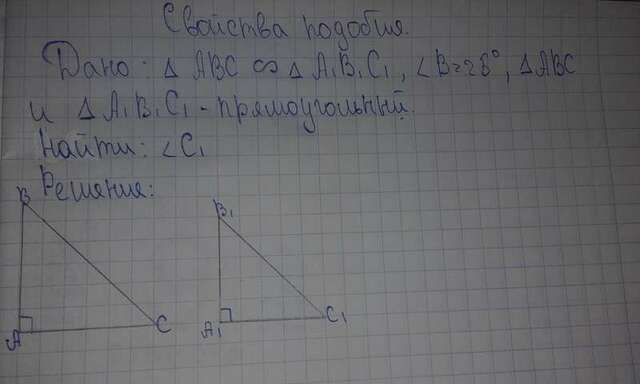 Свойства подобия.
Дано: Δ ABC ∞ Δ A₁B₁C₁, ∠B=28°, Δ ABC
и Δ A₁B₁C₁ - прямоугольный.
Найти: ∠C₁
Решение:
B
B₁
A
C
A₁
C₁